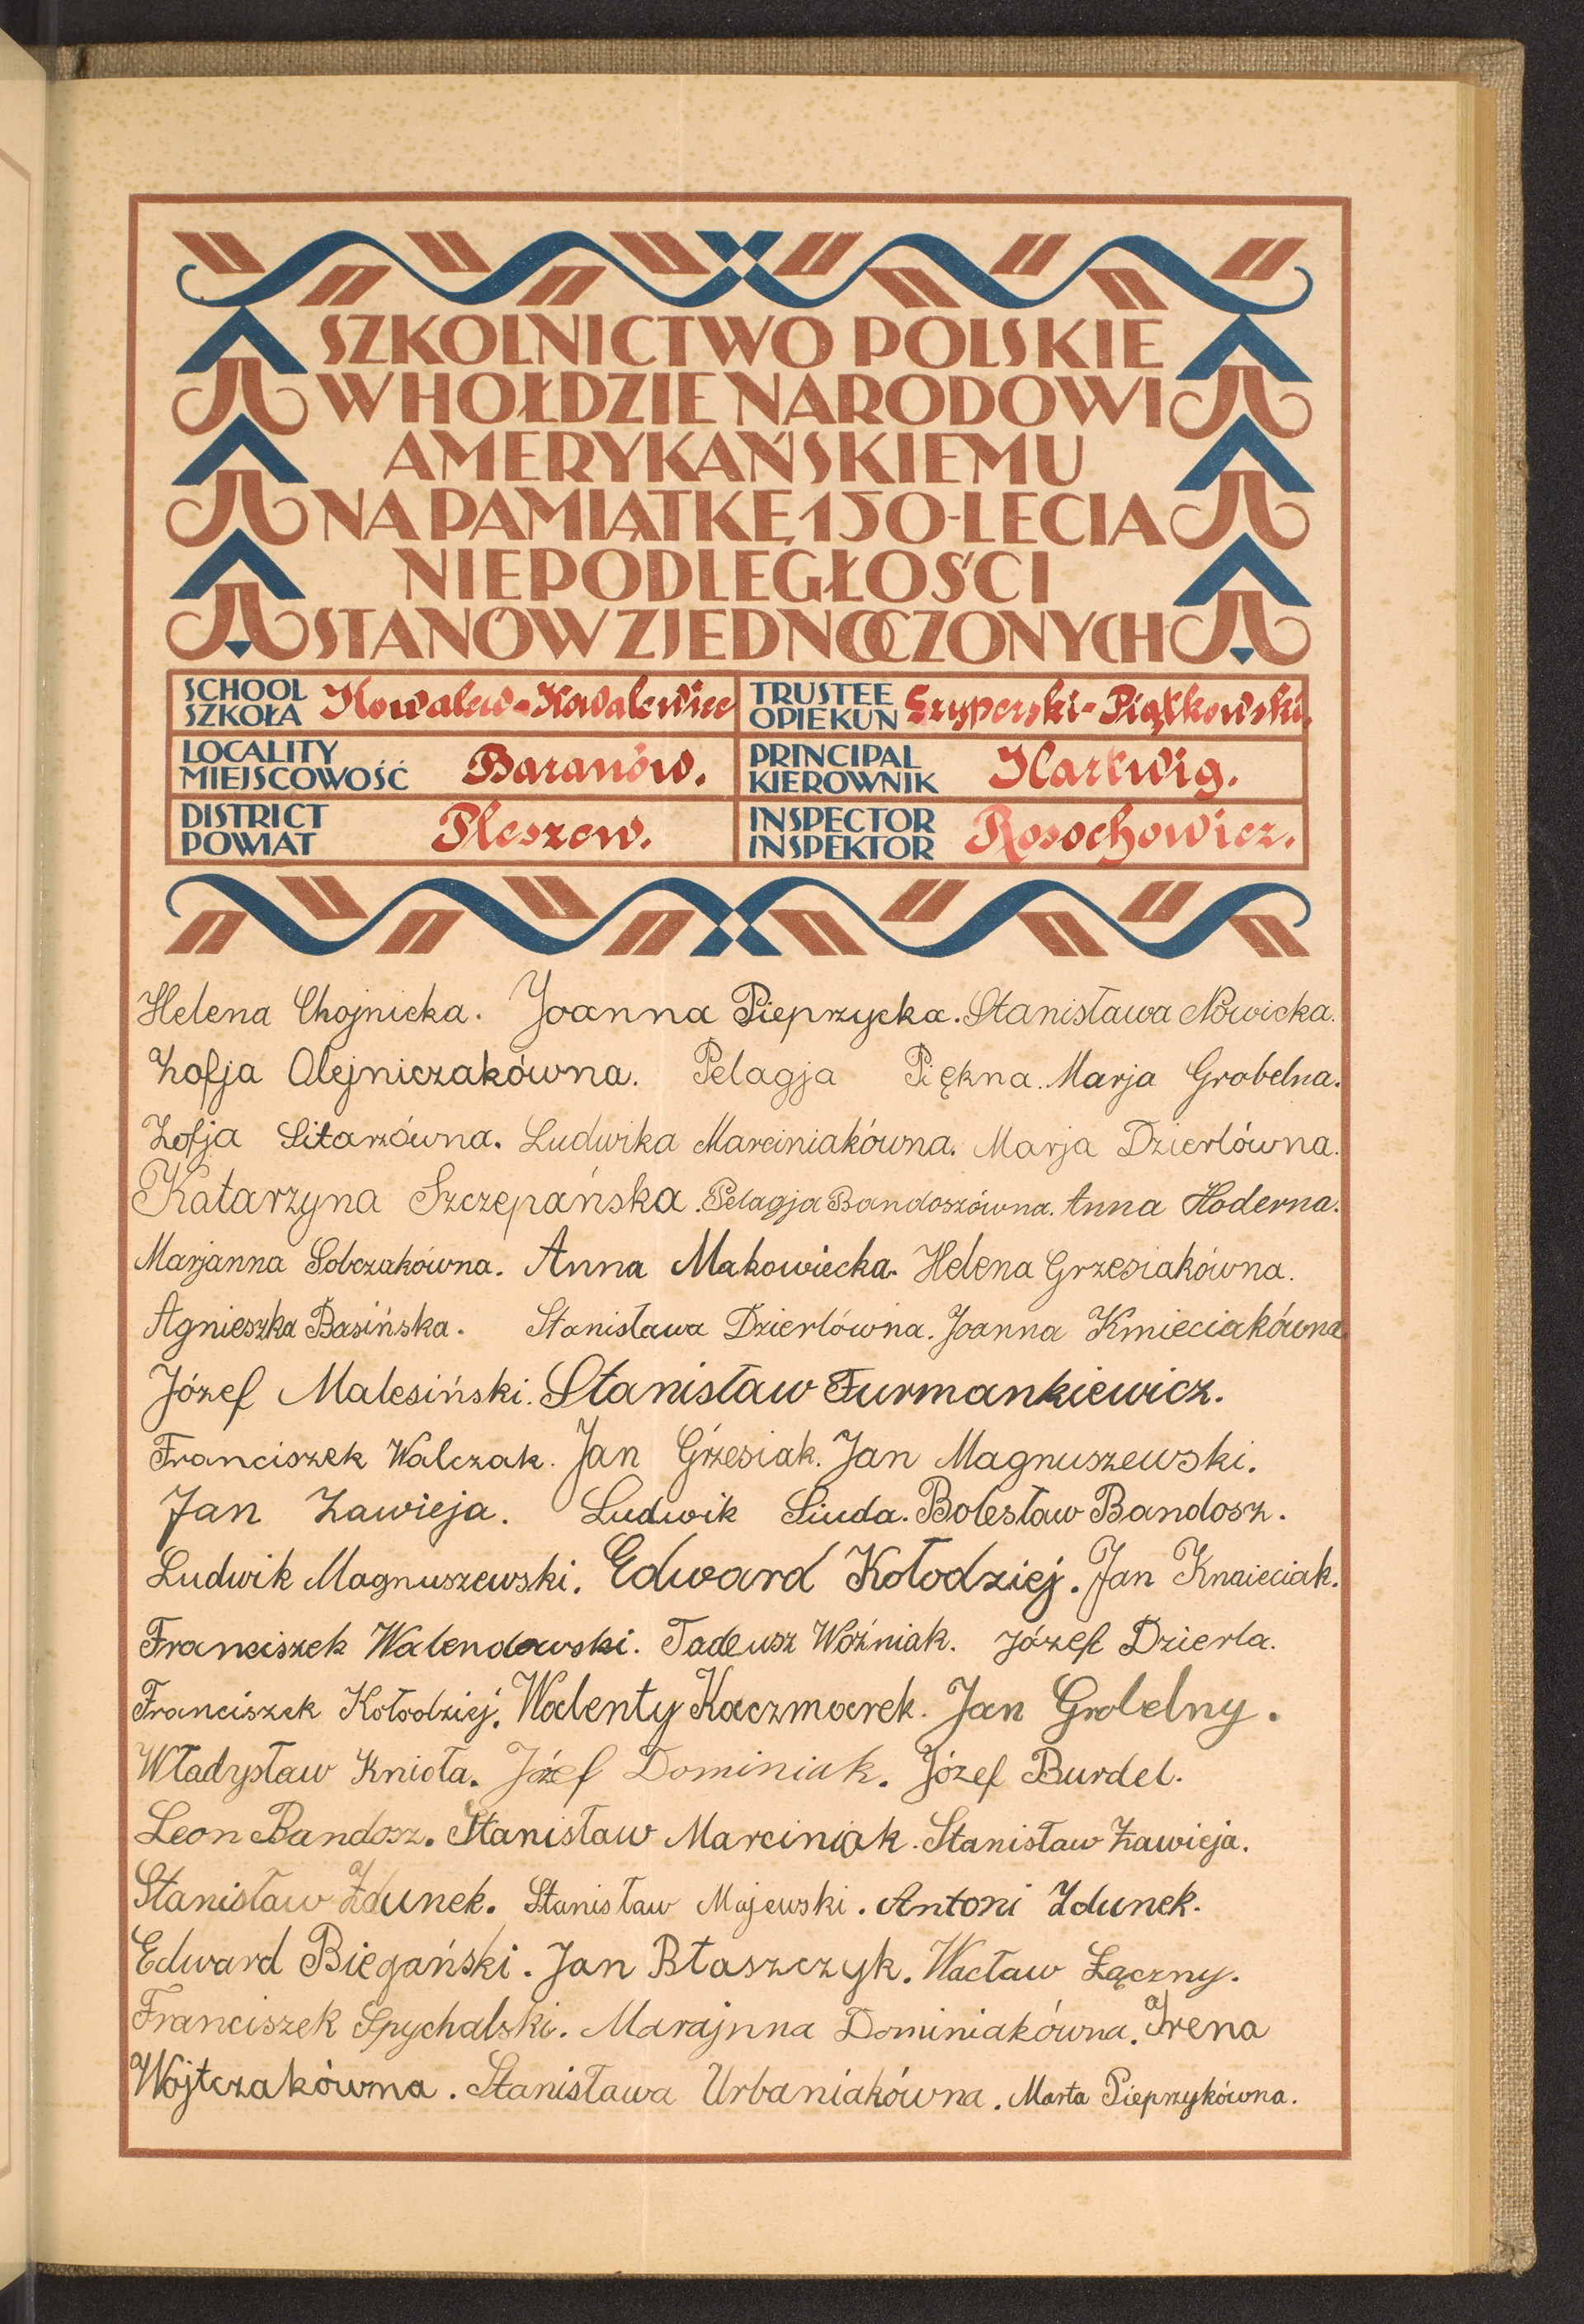 SZKOLNICTWO POLSKIE
W HOŁDZIE NARODOWI
AMERYKAŃSKIEMU
NA PAMIĄTKĘ 150-LECIA
NIEPODLEGŁOŚCI
STANÓW ZJEDNOCZONYCH
SCHOOL SZKOŁA Kowalew-Kowalewiec TRUSTEE OPIEKUN Szyperski-Piątkowski.
LOCALITY MIEJSCOWOŚĆ Baranów. PRINCIPAL KIEROWNIK Hartwig.
DISTRICT POWIAT Pleszew. INSPECTOR INSPEKTOR Rosochowicz.
Helena Chojnicka. Joanna Pieprzycka. Stanisława Nowicka.
Zofja Olejniczakówna. Pelagja Piękna. Marja Grobelna.
Zofja Sitarzówna. Ludwika Marciniakówna. Marja Dzierlówna.
Katarzyna Szczepańska. Pelagja Bandoszówna. Anna Hoderna.
Marjanna Sobczakówna. Anna Makowiecka. Helena Grzesiakówna.
Agnieszka Basińska. Stanisława Dzierlówna. Joanna Kmieciakówna.
Józef Malesiński. Stanisław Furmankiewicz.
Franciszek Walczak. Jan Grzesiak. Jan Magnuszewski.
Jan Zawieja. Ludwik Siuda. Bolesław Bandosz.
Ludwik Magnuszewski. Edward Kołodziej. Jan Kmieciak.
Franciszek Walendowski. Tadeusz Woźniak. Józef Dzierla.
Franciszek Kołodziej. Walenty Kaczmarek. Jan Grobelny.
Władysław Knioła. Józef Dominiak. Józef Burdel.
Leon Bandosz. Stanisław Marciniak. Stanisław Zawieja.
Stanisław Zdunek. Stanisław Majewski. Antoni Zdunek.
Edward Biegański. Jan Błaszczyk. Wacław Łączny.
Franciszek Spychalski. Marajnna Dominiakówna. Irena
Wojtczakówna. Stanisława Urbaniakówna. Marta Pieprzykówna.